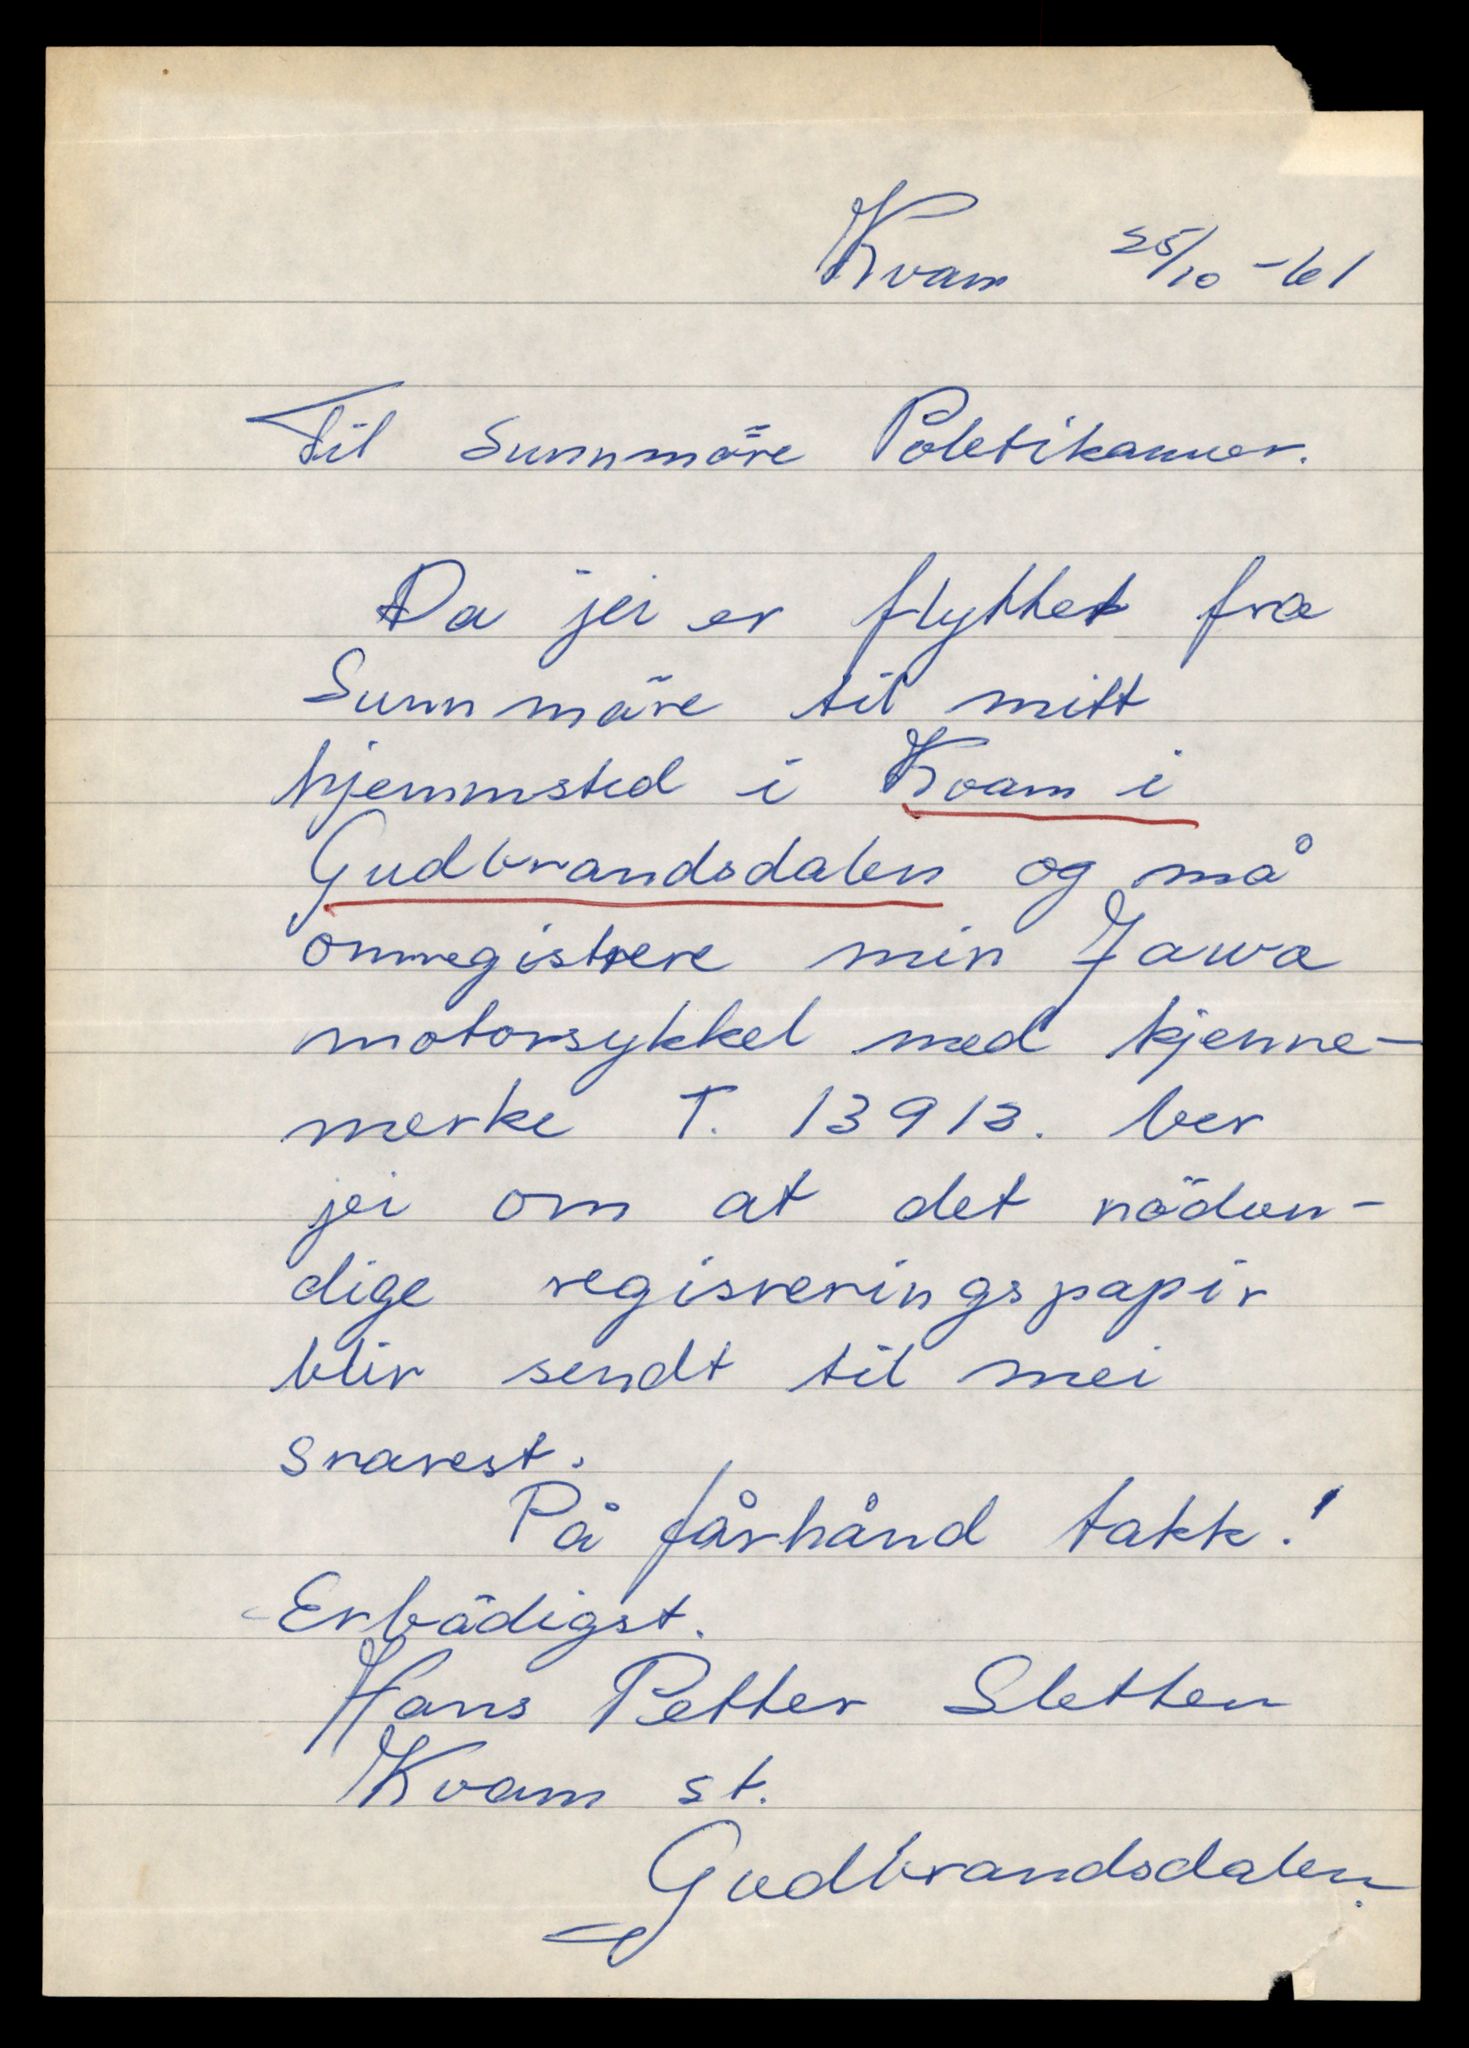 Kvam 25/10 -61
Til Sunnmöre Poletikamer.
Da jei er flyttet fra
Sunnmöre til mitt
hjemmsted i Kvam i
Gudbrandsdalen og må
omregistrere min Jawa
motorsykkel med kjenne-
merke T. 13913. ber
jei om at det nödven-
dige regisreringspapir
blir sendt til mei
snarest.
På fårhånd takk!
Erbödigst.
Hans Petter Sletten
Kvam st.
Gudbrandsdalen.